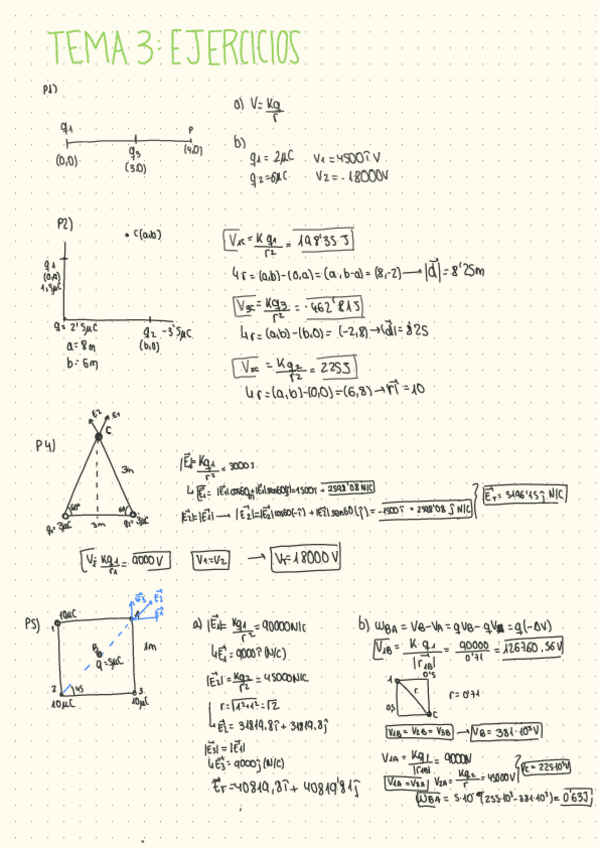 TEMA 3: EJERCICIOS
P1)
q1
P
(0,0)
q3
(3,0)
(4,0)
a) V = Kq/r
b)
q1 = 2μC V1 = 4500 î V
q2 = 6μC V2 = -18000V
P2)
C(a,b)
q1
(0,a)
1,5μC
q3 2'5μC
q2 -3'5μC
(b,0)
a = 8m
b = 6m
V1C = K q1/r² = 198'35 J
↳ r = (a,b)-(0,a) = (a, b-a) = (8,-2) → |d| = 8'25m
V3C = Kq3/r² = -462'81J
↳ r = (a,b)-(b,0) = (-2,8) → |d| = 8'25
= Kq2/r² = 225J
↳ r = (a,b)-(0,0) = (6,8) → r = 10
P4)
E2 E1
C
3m
60°
60
3m
3μC
3μC
|E| = Kq1/r² = 3000
2598'08 N/C
ET = 5196'15 ĵ N/C
Kq1/r1 = 9000V
V1 = V2
→ VT = 18000V
P5)
10μC
A
E3
E2
E1
1
B
q = 5μC
1m
2
45
3
10μC
10μC
a) |E1| = Kq1/r² = 90000N/C
↳ E1 = 9000 î (N/C)
|E2| = Kq2/r² = 45000N/C
r = √1²+1² = √2
↳ E2 = 31819,8 î + 31819,8 ĵ
|E3| = |E1|
↳ E3 = 9000 ĵ (N/C)
ET = 40819,8 î + 40819'81 ĵ
b) WBA = VB-VA = qVB - qVA = q(-ΔV)
V1B = K·q1/|r1B| = 90000/0'71 = 126760,56V
1
0'5
r
0'5
C
r = 0'71
V1B = V2B = V3B → VB = 381·10³V
V1A = Kq1/|r1B| = 9000N
V1A = V3A V2A = Kq2/r = 45000V
VC = 225·10³V
WBA = 5·10⁻⁶(255·10³-381·10³) = 0'63J